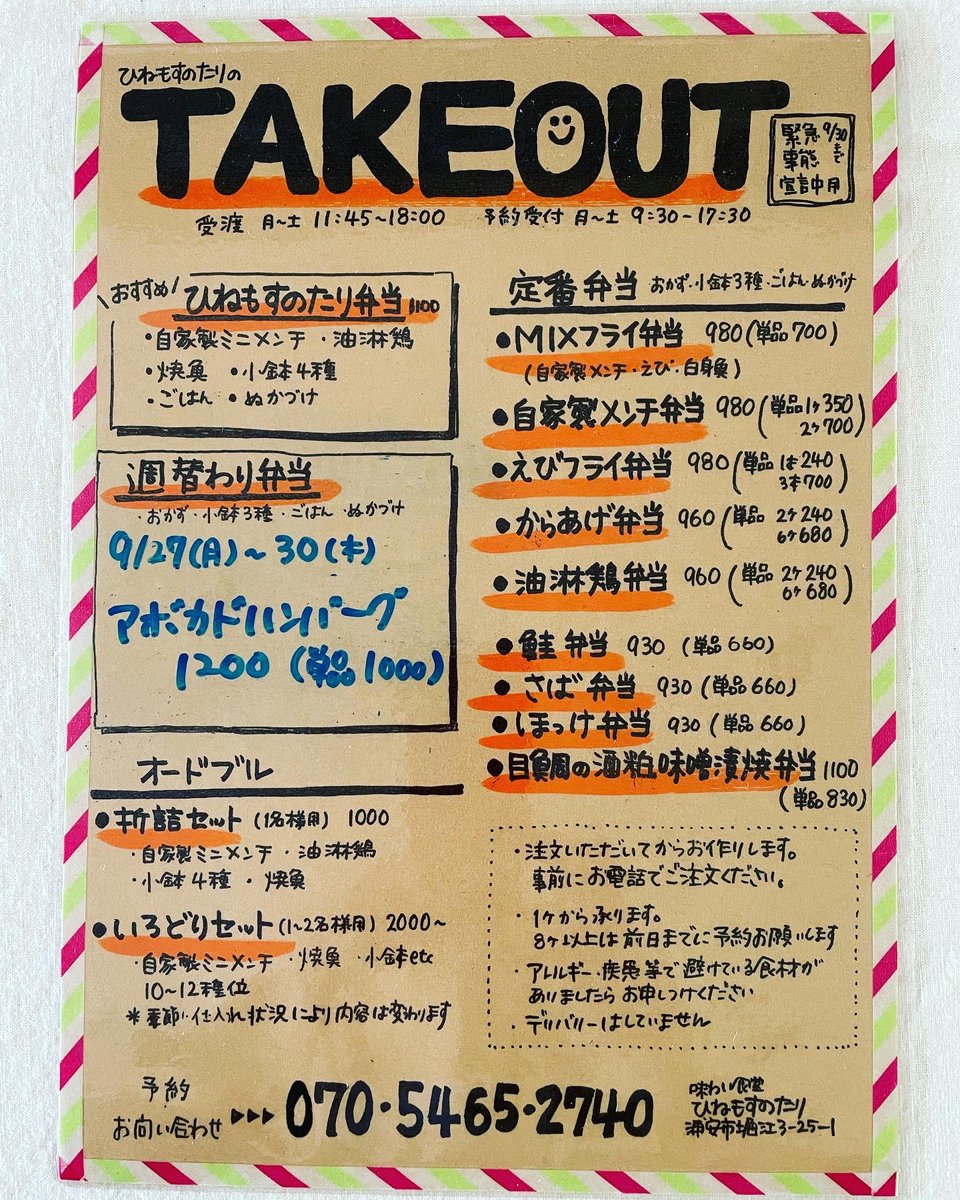 ひねもすのたりの
TAKEOUT
9/30まで
緊急
事態
宣言中用
受渡 月〜土 11:45〜18:00 予約受付 月〜土 9:30-17:30
おすすめ
ひねもすのたり弁当 1100
・自家製ミニメンチ ・油淋鶏
・焼魚 ・小鉢4種
・ごはん ・ぬかづけ
週替わり弁当
・おかず・小鉢3種・ごはん・ぬかづけ
9/27(月)〜30(木)
アボカドハンバーグ
1200 (単品1000)
オードブル
・折詰セット (1名様用) 1000
・自家製ミニメンチ ・油淋鶏
・小鉢4種 ・焼魚
・いろどりセット (1〜2名様用) 2000〜
・自家製ミニメンチ ・焼魚 ・小鉢etc
10〜12種位
*季節・仕入れ状況により内容は変わります
定番弁当 おかず・小鉢3種・ごはん・ぬかづけ
・MIXフライ弁当 980(単品700)
(自家製メンチ・えび・白身魚)
・自家製メンチ弁当 980(単品1ケ350
2ケ700)
・えびフライ弁当 980(単品 1本240
3本700)
・からあげ弁当 960(単品 2ケ240
6ケ680)
・油淋鶏弁当 960(単品 2ケ240
6ケ680)
・鮭弁当 930 (単品660)
・さば弁当 930 (単品660)
・しまっけ弁当 930 (単品660)
・目鯛の酒粕味噌漬焼弁当 1100
(単品830)
・注文いただいてからお作りします。
事前にお電話でご注文ください。
・1ケから承ります。
8ケ以上は前日までに予約お願いします
・アレルギー・疾患等で避けている食材が
ありましたらお申しつけください
・デリバリーはしていません
予約
お問い合わせ ▶▶▶ 070・5465・2740
味わい食堂
ひねもすのたり
浦安市堀江3-25-1